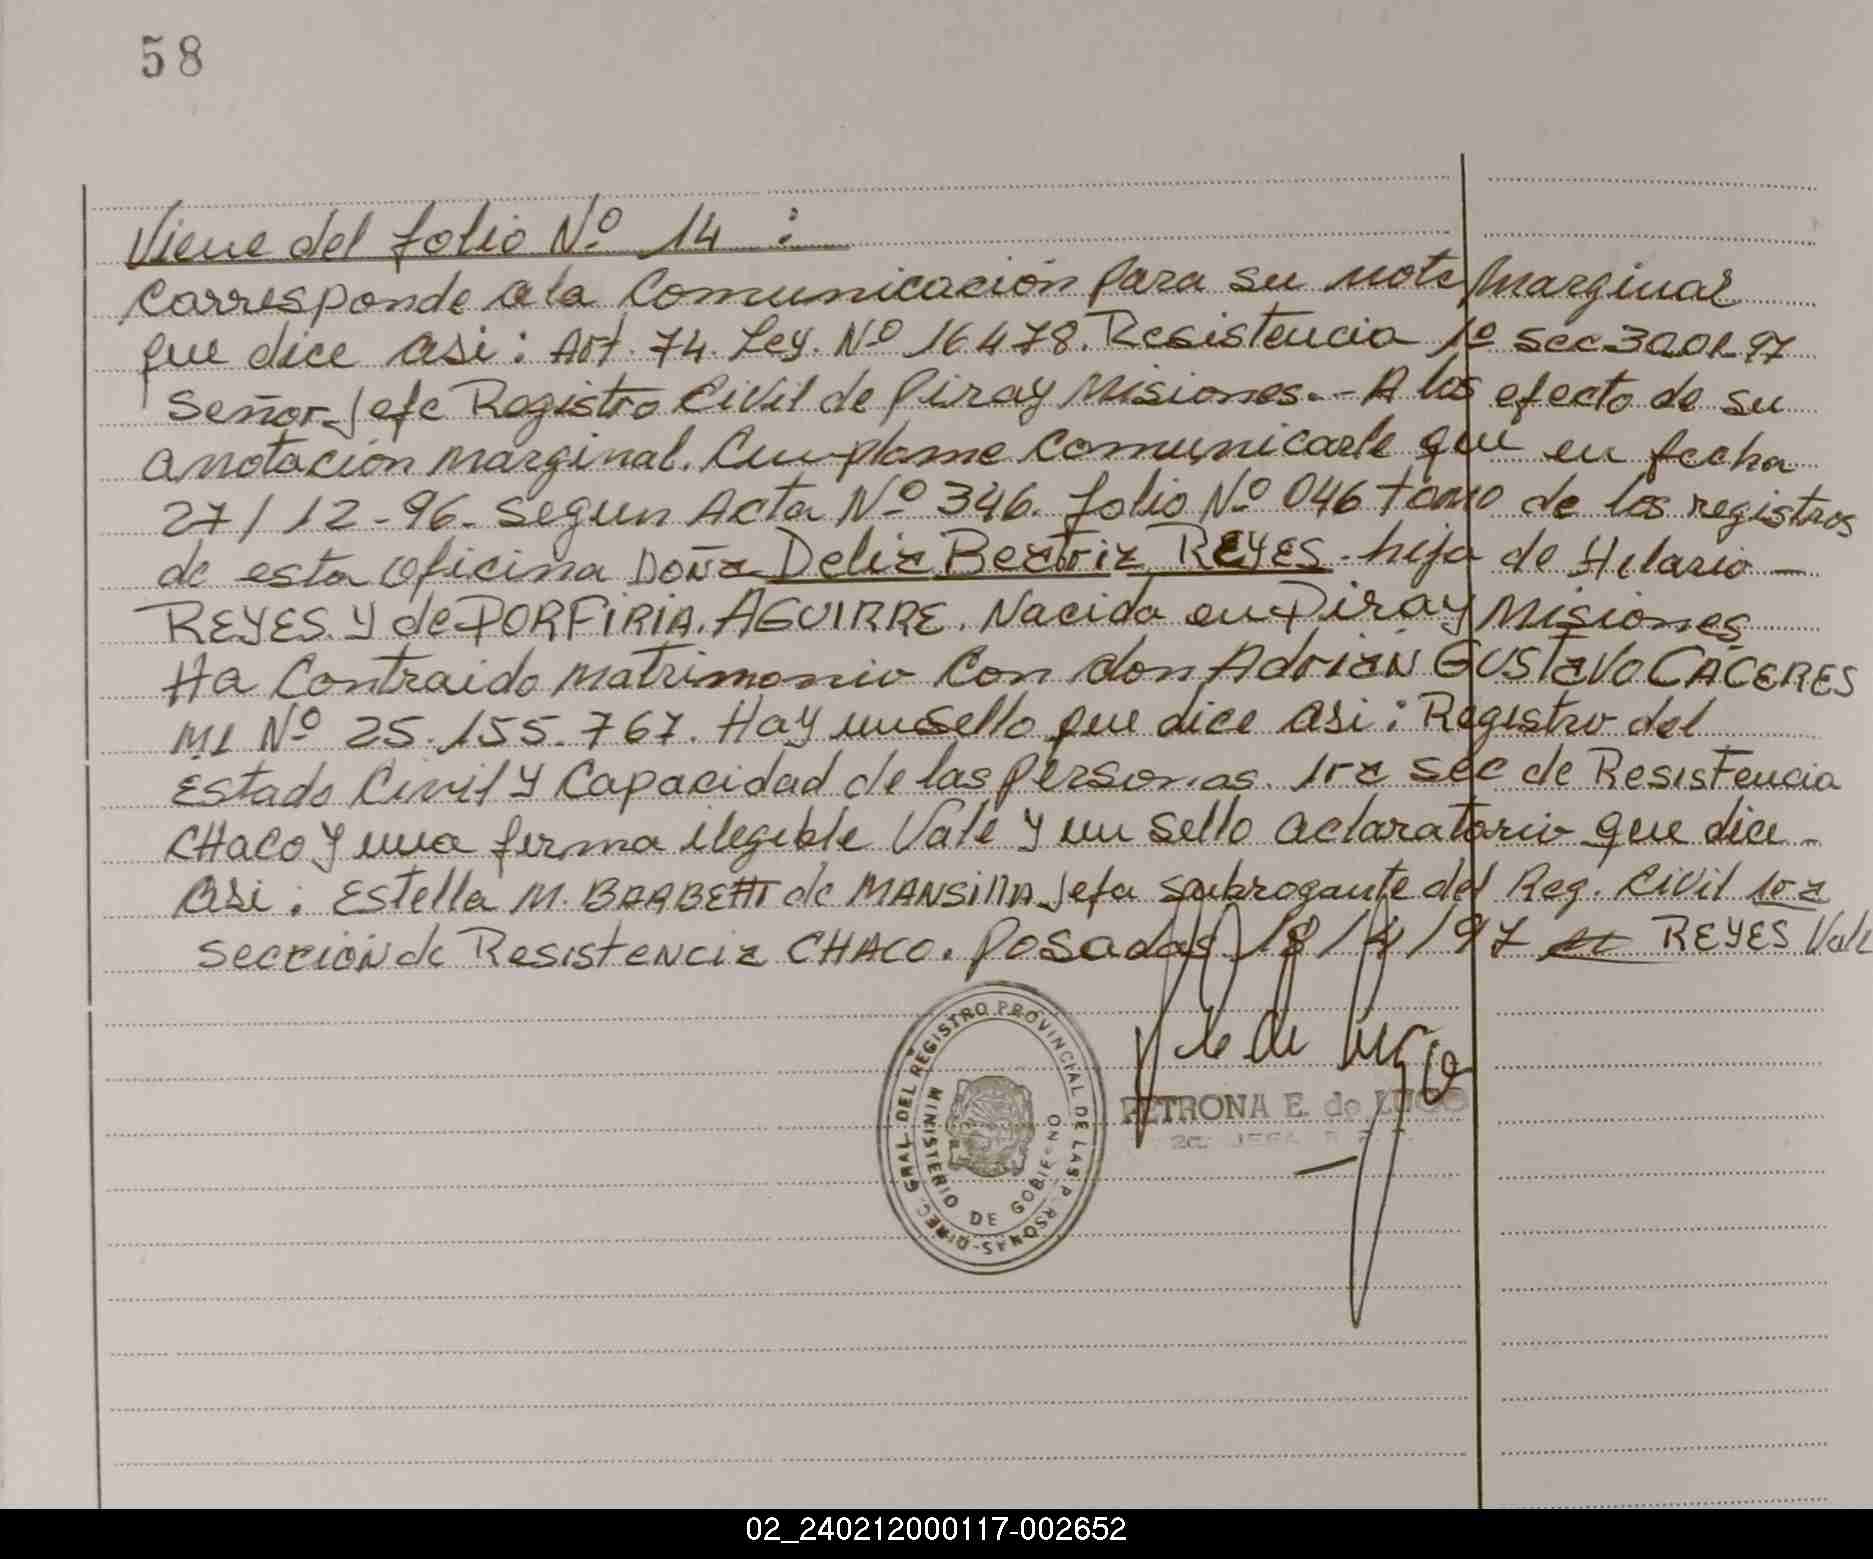 58
Viene del folio Nº 14 :
Corresponde a la Comunicación para su nota marginal
que dice asi : Art. 74. Ley. Nº 16478. Resistencia 1º Sec 30.01.97
Señor Jefe Registro Civil de Piray Misiones. - A los efecto de su
anotación marginal. Cumplame comunicarle que en fecha
27/12-96. Segun Acta Nº 346. folio Nº 046 tomo de los registros
de esta oficina Doña Delia Beatriz REYES. hija de Hilario -
REYES. Y de PORFIRIA. AGUIRRE. Nacida en Piray Misiones
Ha Contraido matrimonio Con don Adrian GUSTAVO CACERES
MI Nº 25.155.767. Hay un Sello que dice asi : Registro del
Estado Civil Y Capacidad de las Personas. 1ra Sec de Resistencia
CHACO Y una firma ilegible Vale Y un Sello aclaratorio que dice -
asi : Estella M. BARBETTI de MANSILLA Jefa Subrogante del Reg. Civil 1ra
Sección de Resistencia CHACO. Posadas 18/4/97 REYES Vale
DIREC. GRAL. DEL REGISTRO PROVINCIAL DE LAS P RSONAS
MINISTERIO DE GOBIERNO
PETRONA E. de LUGO
2a. JEFA
02_240212000117-002652